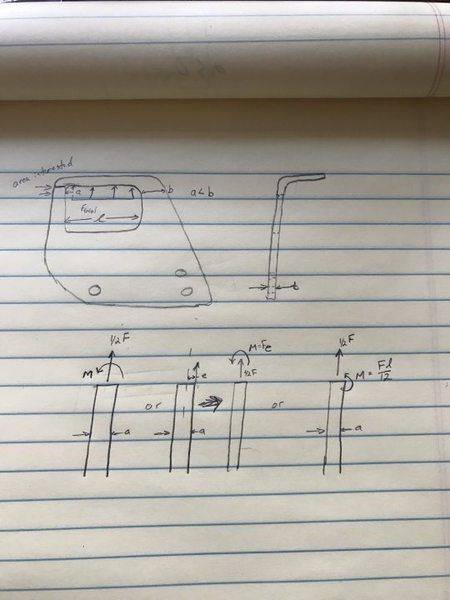 area interested
a
b
a<b
Ftotal
l
t
½F
M
a
or
e
a
M=Fe
½F
or
½F
M = Fl/12
a